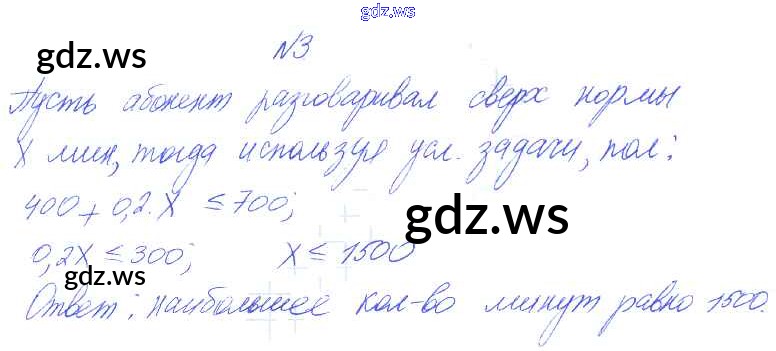 gdz.ws
gdz.ws
№3
Пусть абонент разговаривал сверх нормы
X мин, тогда используя усл. задачи, пол:
400 + 0,2·X ≤ 700;
gdz.ws
0,2X ≤ 300; X ≤ 1500
gdz.ws
Ответ: наибольшее кол-во минут равно 1500.